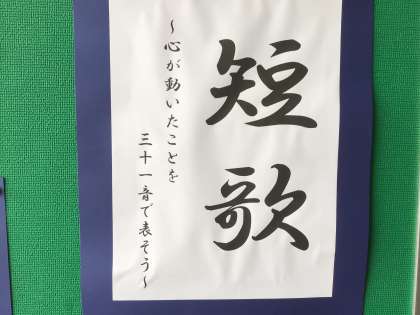 短歌
~心が動いたことを
三十一音で表そう~